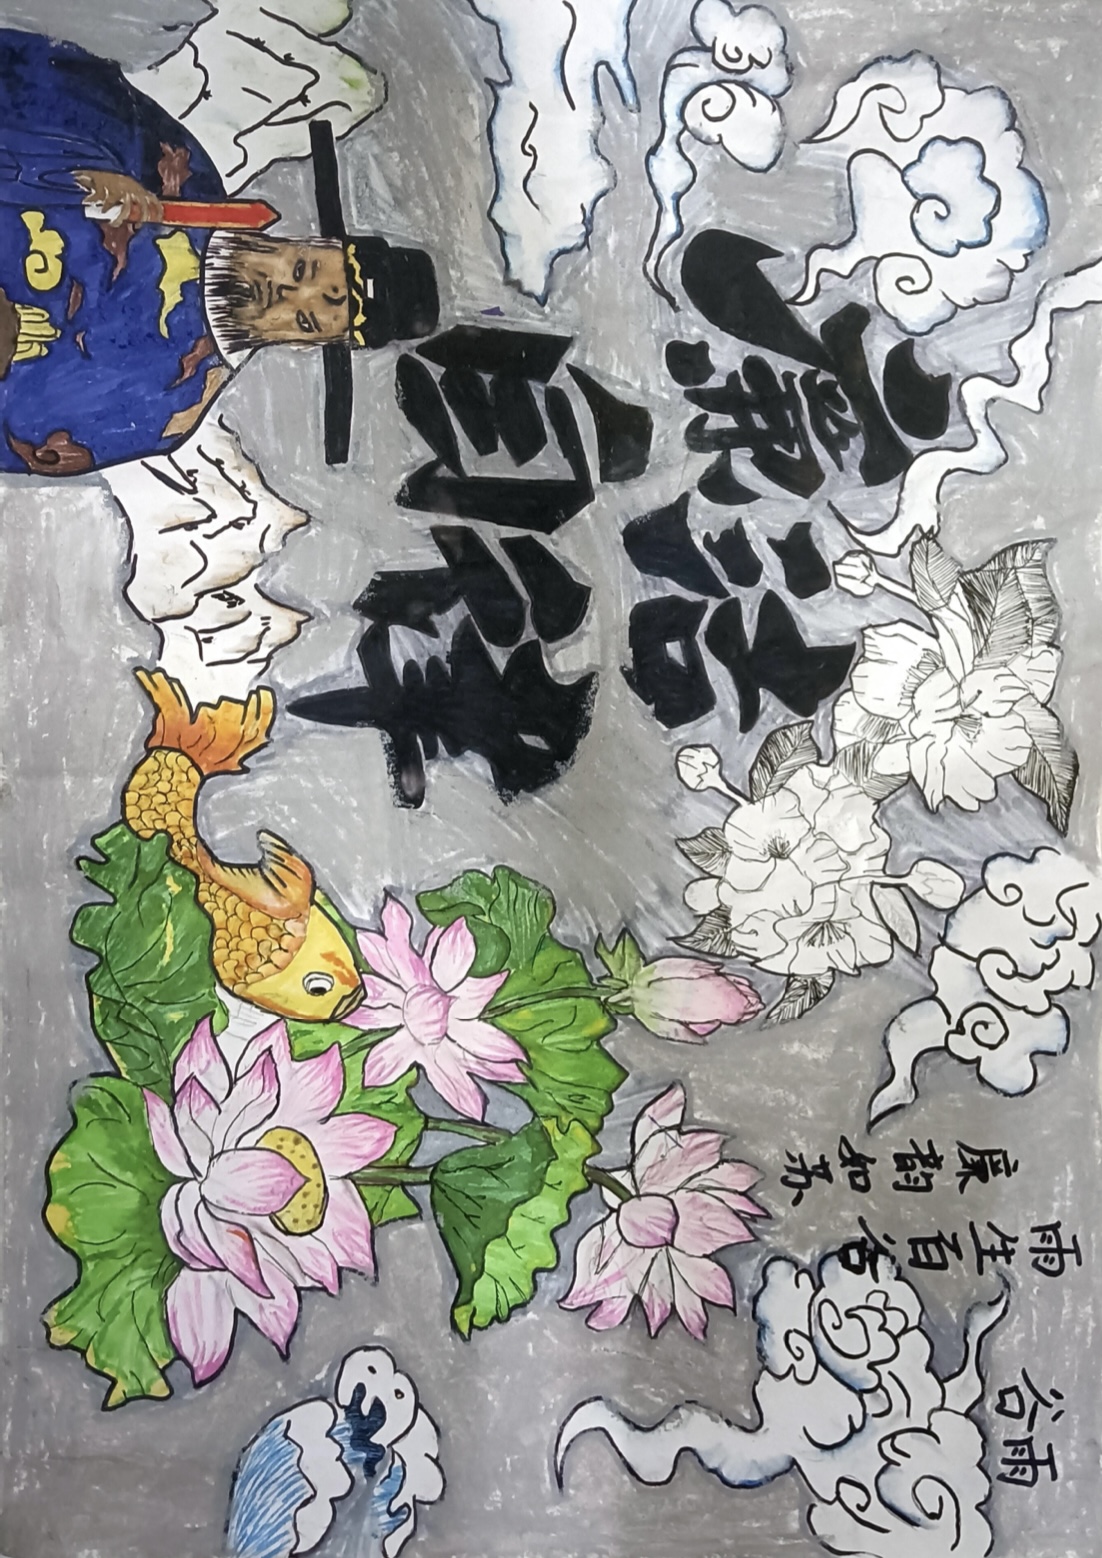 廉洁
自律
谷雨
雨生百谷
廉韵如苏